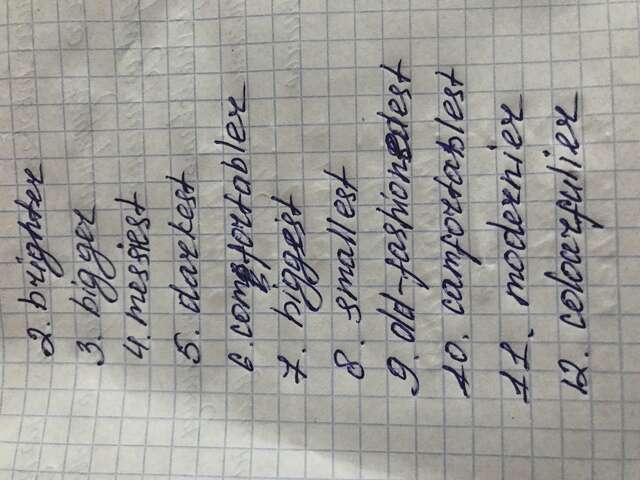 2. brighter
3. bigger
4. messiest
5. darkest
6. comfortabler
7. biggest
8. smallest
9. old-fashionedest
10. camfortablest
11. modernier
12. coloarfulier